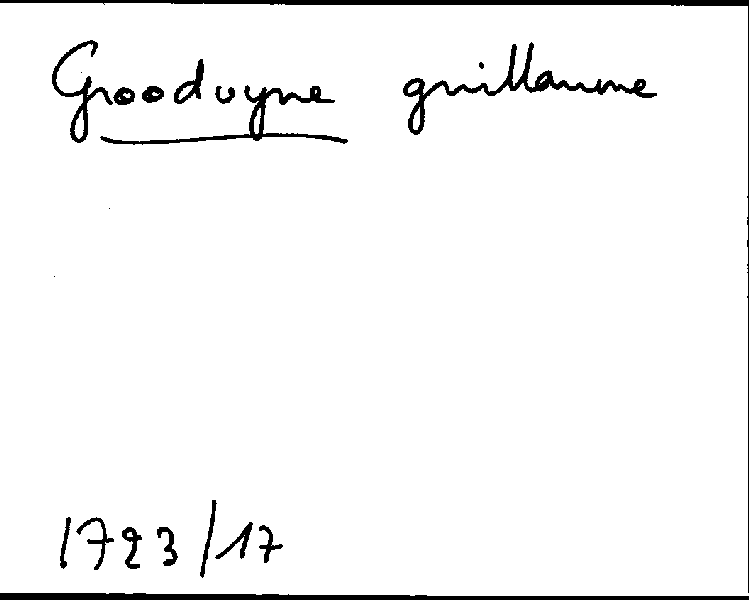 Grooduyne guillaume
1723/17